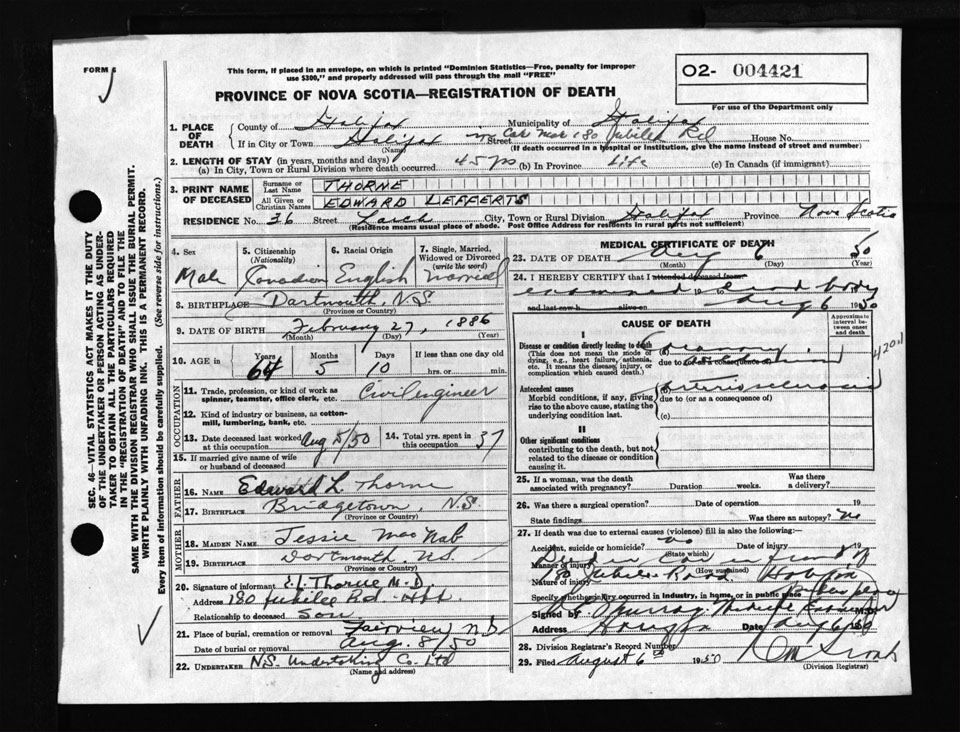 FORM 6
This form, if placed in an envelope, on which is printed "Dominion Statistics—Free, penalty for improper
use $300," and properly addressed will pass through the mail "FREE"
PROVINCE OF NOVA SCOTIA—REGISTRATION OF DEATH
O2- 004421
For use of the Department only
1. PLACE OF DEATH
County of Halifax Municipality of Halifax
If in City or Town Halifax (Name) in Car near 180 Jubilee Rd Street House No.
(If death occurred in a hospital or institution, give the name instead of street and number)
2. LENGTH OF STAY (in years, months and days)
(a) In City, Town or Rural Division where death occurred 45 yrs (b) In Province Life (c) In Canada (if immigrant)
3. PRINT NAME OF DECEASED
Surname or Last Name THORNE
All Given or Christian Names EDWARD LEFFERTS
RESIDENCE No. 36 Street Larch City, Town or Rural Division Halifax Province Nova Scotia
(Residence means usual place of abode. Post Office Address for residents in rural parts not sufficient)
4. Sex Male
5. Citizenship (Nationality) Canadian
6. Racial Origin English
7. Single, Married, Widowed or Divorced (write the word) Married
8. BIRTHPLACE Dartmouth, N.S.
(Province or Country)
9. DATE OF BIRTH February 27, 1886
(Month) (Day) (Year)
10. AGE in Years 64 Months 5 Days 10 If less than one day old hrs. or min.
OCCUPATION
11. Trade, profession, or kind of work as spinner, teamster, office clerk, etc. Civil engineer
12. Kind of industry or business, as cotton-mill, lumbering, bank, etc.
13. Date deceased last worked at this occupation Aug 5/50
14. Total yrs. spent in this occupation 37
15. If married give name of wife or husband of deceased
FATHER
16. NAME Edward L. Thorne
17. BIRTHPLACE Bridgetown, N.S.
(Province or Country)
MOTHER
18. MAIDEN NAME Jessie MacNab
19. BIRTHPLACE Dartmouth N.S.
(Province or Country)
20. Signature of informant E.L. Thorne M.D.
Address 180 Jubilee Rd. Hfx
Relationship to deceased Son
21. Place of burial, cremation or removal Fairview N.S.
Date of burial or removal Aug. 8/50
22. UNDERTAKER N.S. Undertaking Co. Ltd
(Name and address)
MEDICAL CERTIFICATE OF DEATH
23. DATE OF DEATH Aug 6 50
(Month) (Day) (Year)
24. I HEREBY CERTIFY that I attended deceased from
examined 19 to dead body
and last saw h alive on Aug 6 1950
CAUSE OF DEATH
Approximate interval between onset and death
I
Disease or condition directly leading to death
(This does not mean the mode of dying, e.g., heart failure, asthenia, etc. It means the disease, injury, or complication which caused death.)
(a) Coronary
due to
420.1
Antecedent causes
Morbid conditions, if any, giving rise to the above cause, stating the underlying condition last.
(b) arteriosclerosis
due to (or as a consequence of)
(c)
II
Other significant conditions
contributing to the death, but not related to the disease or condition causing it.
25. If a woman, was the death associated with pregnancy? Duration weeks. Was there a delivery?
26. Was there a surgical operation? Date of operation 19
State findings Was there an autopsy? No
27. If death was due to external causes (violence) fill in also the following:
Accident, suicide or homicide? no (State which) Date of injury 19
Manner of injury Died in Car in front of
(How sustained)
Nature of injury 180 Jubilee Road. Halifax
Specify whether injury occurred in industry, in home, or in public place
Signed by Murray Medical Examiner M.D.
Address Date Aug 6 1950
28. Division Registrar's Record Number
29. Filed August 6th 1950
(Division Registrar)
SEC. 46—VITAL STATISTICS ACT MAKES IT THE DUTY
OF THE UNDERTAKER OR PERSON ACTING AS UNDER-
TAKER TO OBTAIN ALL THE PARTICULARS REQUIRED
IN THE "REGISTRATION OF DEATH" AND TO FILE THE
SAME WITH THE DIVISION REGISTRAR WHO SHALL ISSUE THE BURIAL PERMIT.
WRITE PLAINLY WITH UNFADING INK. THIS IS A PERMANENT RECORD.
Every item of information should be carefully supplied. (See reverse side for instructions.)